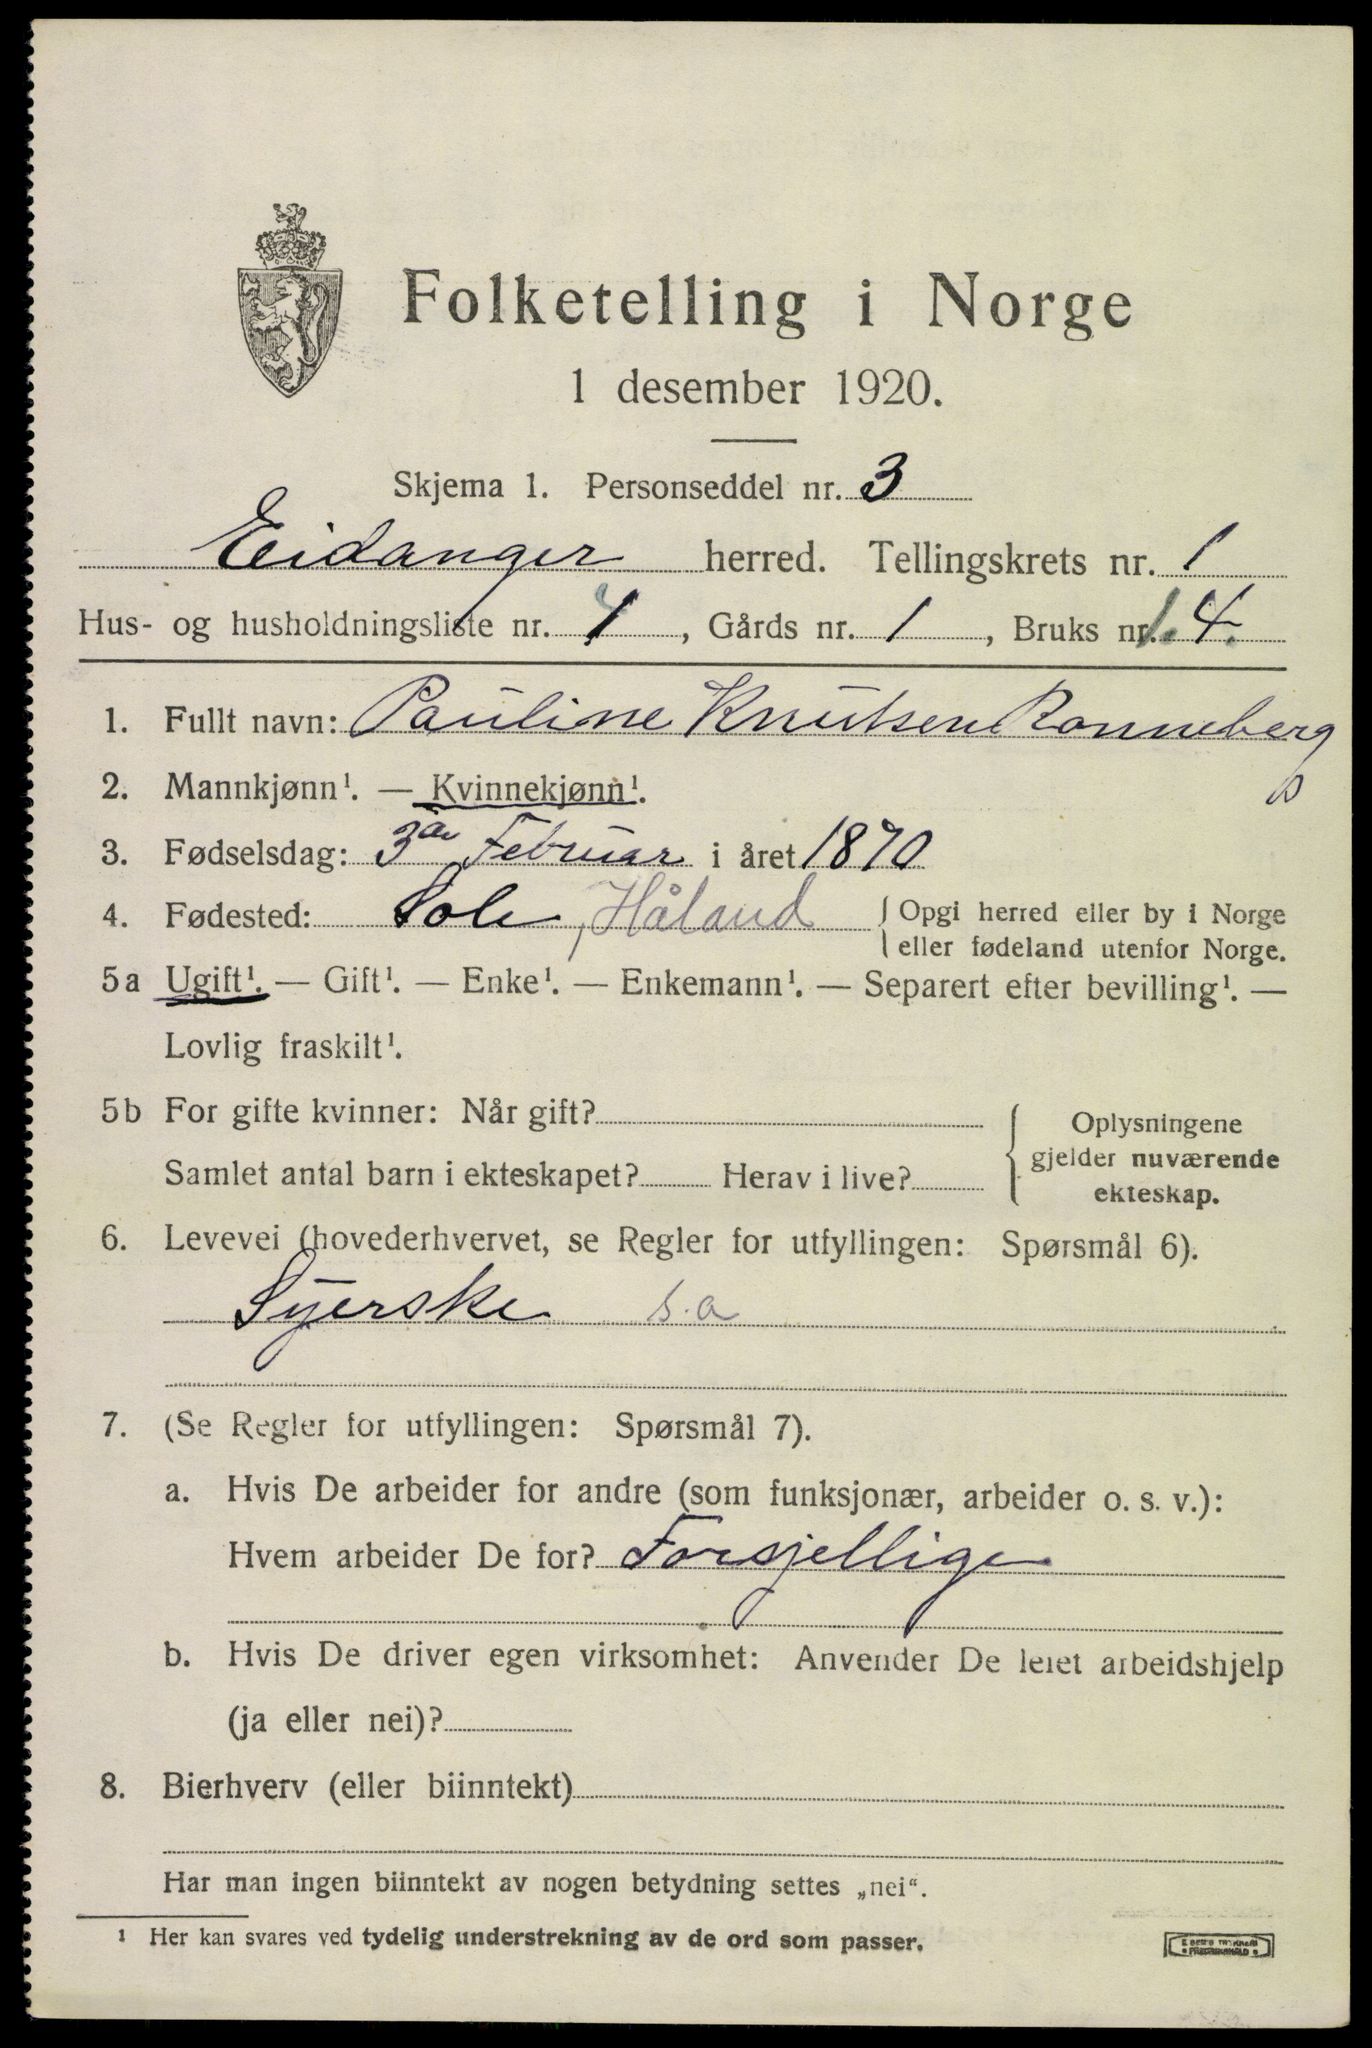 Folketelling i Norge
1 desember 1920.
Skjema 1. Personseddel nr. 3
Eidanger herred. Tellingskrets nr. 1
Hus- og husholdningsliste nr. 1, Gårds nr. 1, Bruks nr. 1. 4.
1. Fullt navn: Pauline Knutsen Ronneberg
2. Mannkjønn¹. — Kvinnekjønn¹.
3. Fødselsdag: 3de Februar i året 1870
4. Fødested: Sole, Håland { Opgi herred eller by i Norge
eller fødeland utenfor Norge.
5a Ugift¹. — Gift¹. — Enke¹. — Enkemann¹. — Separert efter bevilling¹. —
Lovlig fraskilt¹.
5b For gifte kvinner: Når gift? { Oplysningene
gjelder nuværende
Samlet antal barn i ekteskapet? Herav i live? ekteskap.
6. Levevei (hovederhvervet, se Regler for utfyllingen: Spørsmål 6).
Syerske s.a
7. (Se Regler for utfyllingen: Spørsmål 7).
a. Hvis De arbeider for andre (som funksjonær, arbeider o. s. v.):
Hvem arbeider De for? Forsjellige
b. Hvis De driver egen virksomhet: Anvender De leiet arbeidshjelp
(ja eller nei)?
8. Bierhverv (eller biinntekt)
Har man ingen biinntekt av nogen betydning settes „nei“.
¹ Her kan svares ved tydelig understrekning av de ord som passer.